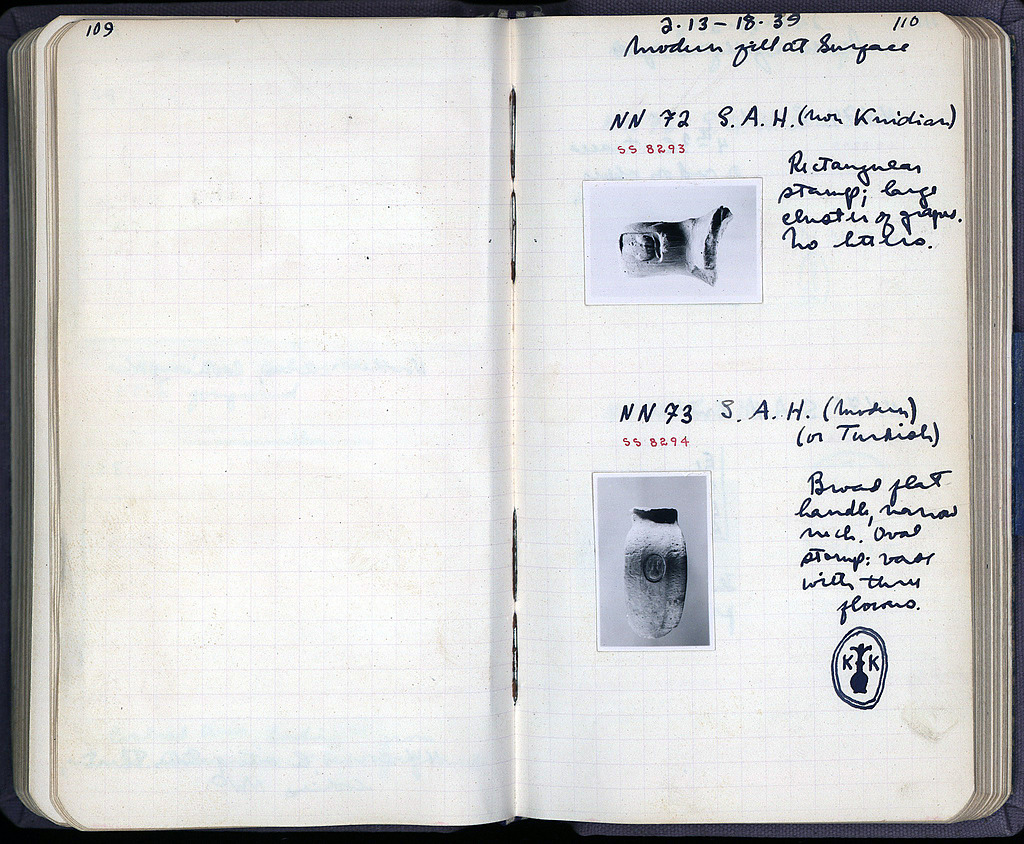 109
2·13-18·39
110
Modern fill at Surface
NN 72 S.A.H. (non Knidian)
SS 8293
Rectangular
stamp; large
cluster of grapes.
No letters.
NN 73 S.A.H. (modern)
(or Turkish)
SS 8294
Broad flat
handle, narrow
neck. Oval
stamp: vase
with three
flowers.
K K